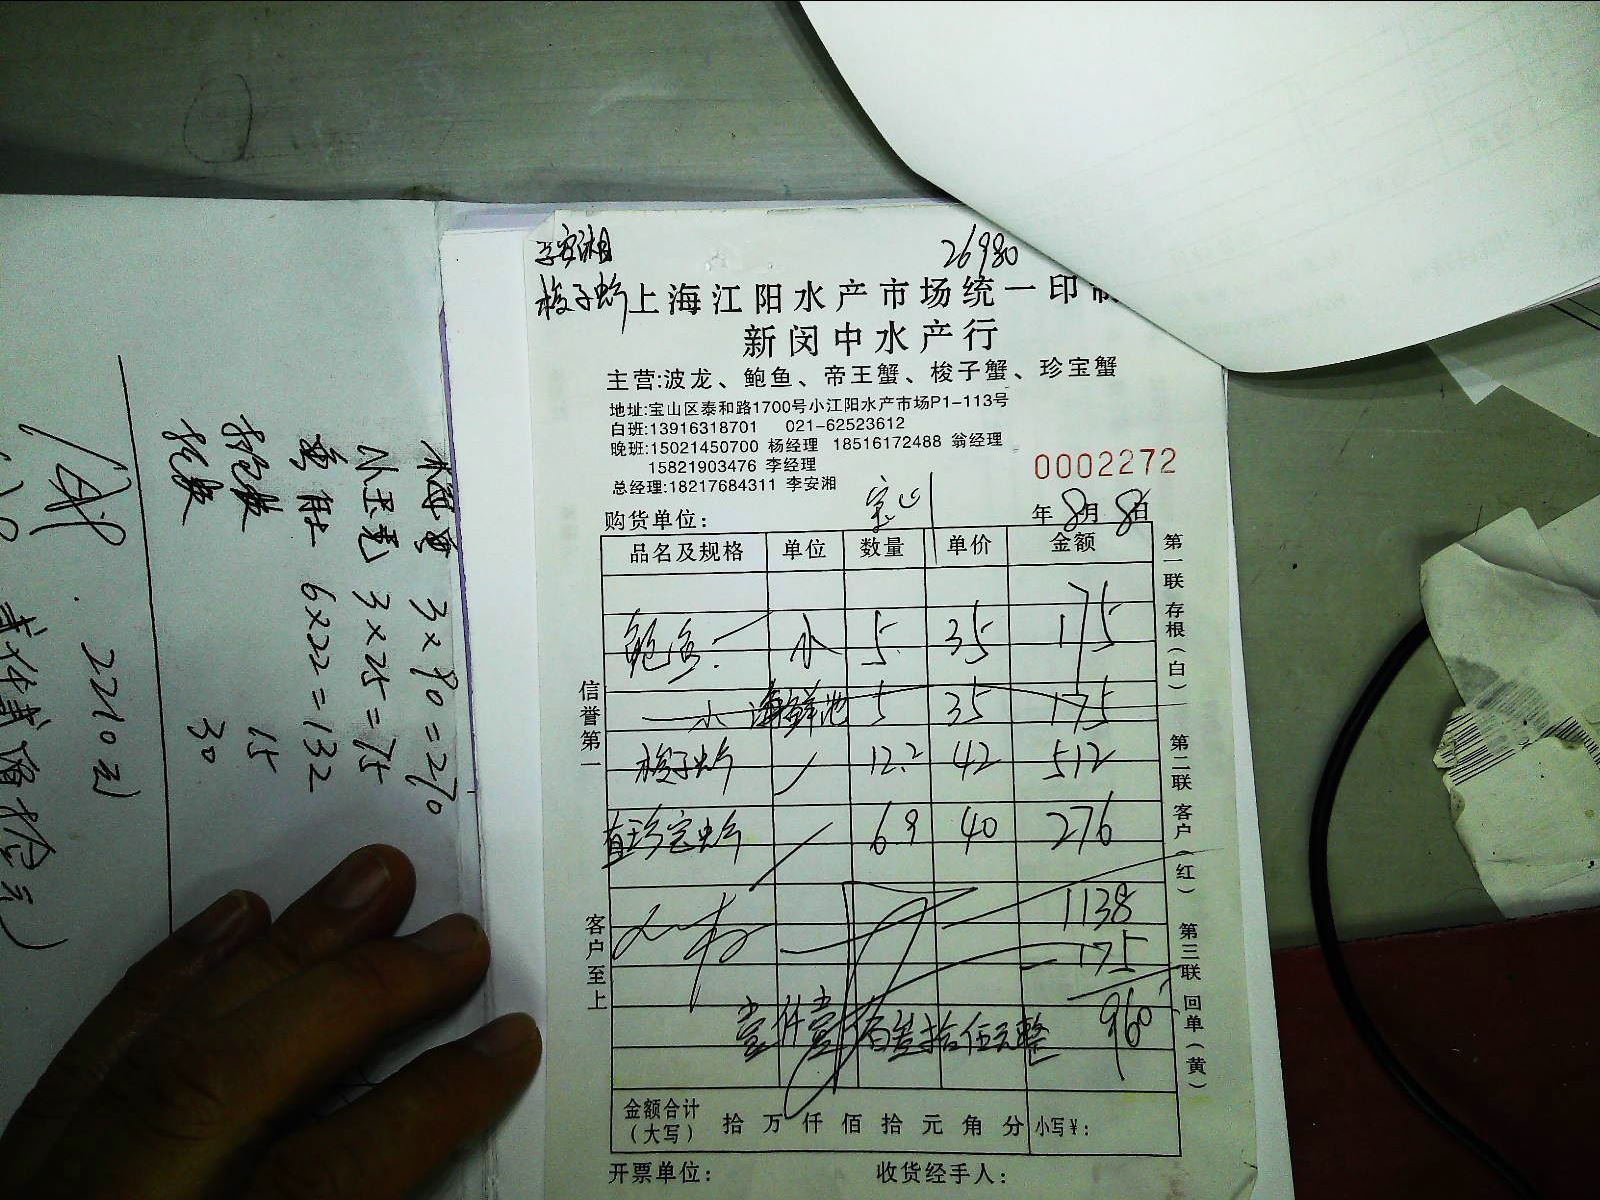 李安湘
26980
梭子蚧
上海江阳水产市场统一印制
新闵中水产行
主营:波龙、鲍鱼、帝王蟹、梭子蟹、珍宝蟹
地址:宝山区泰和路1700号小江阳水产市场P1-113号
白班:13916318701 021-62523612
晚班:15021450700 杨经理 18516172488 翁经理
15821903476 李经理
总经理:18217684311 李安湘
0002272
购货单位: 宝山
年8月8日
品名及规格 单位 数量 单价 金额
鲍鱼 小 5 35 175
小 海鲜池 5 35 175
梭子蚧 12.2 42 512
直珍宝蚧 6.9 40 276
1138
175
960
壹仟壹佰叁拾伍元整
金额合计
(大写)
拾 万 仟 佰 拾 元 角 分 小写¥:
开票单位: 收货经手人:
信誉第一
客户至上
第一联 存根(白)
第二联 客户(红)
第三联 回单(黄)
3×90=270
3×25=75
6×22=132
15
30
2210